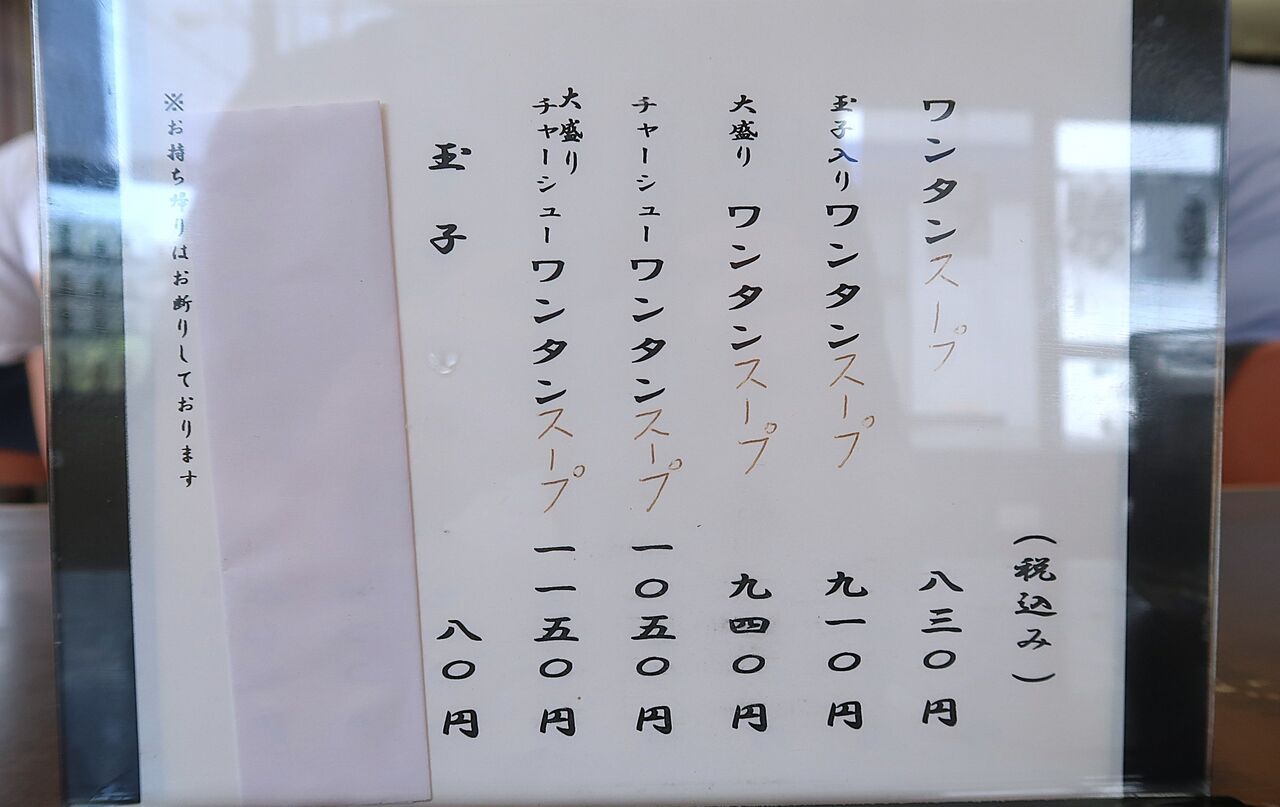 (税込み)
ワンタンスープ 八三〇円
玉子入りワンタンスープ 九一〇円
大盛り ワンタンスープ 九四〇円
チャーシューワンタンスープ 一〇五〇円
大盛りチャーシューワンタンスープ 一一五〇円
玉子 八〇円
※お持ち帰りはお断りしております